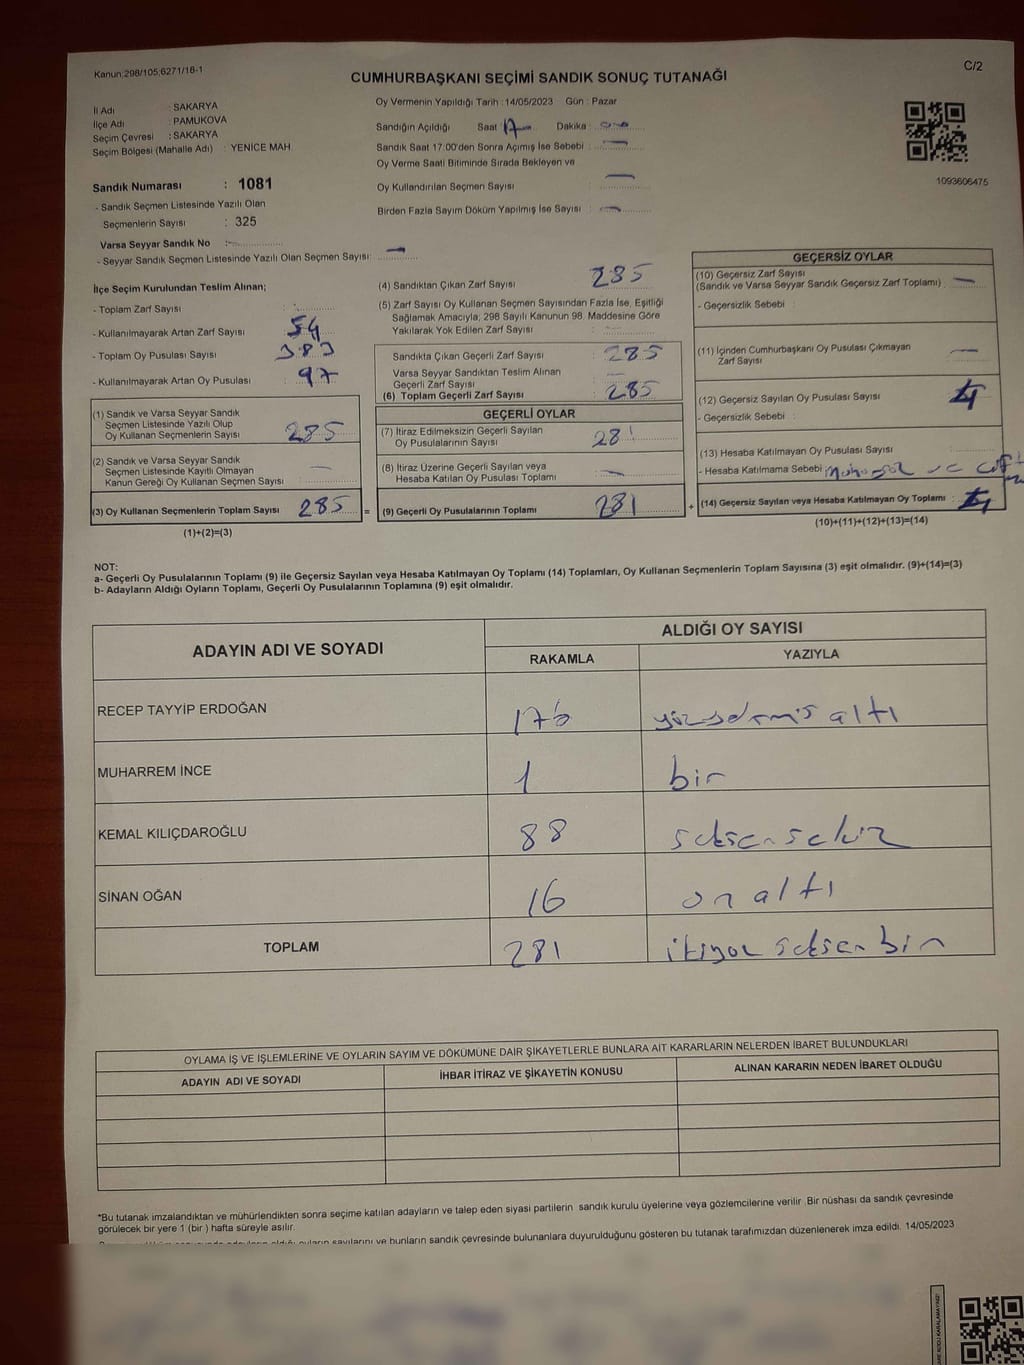 Kanun:298/105;6271/16-1
C/2
CUMHURBAŞKANI SEÇİMİ SANDIK SONUÇ TUTANAĞI
İl Adı : SAKARYA
İlçe Adı : PAMUKOVA
Seçim Çevresi : SAKARYA
Seçim Bölgesi (Mahalle Adı) : YENİCE MAH.
Oy Vermenin Yapıldığı Tarih : 14/05/2023 Gün : Pazar
Sandığın Açıldığı Saat : Dakika :
Sandık Saat 17:00'den Sonra Açımış İse Sebebi : —
Oy Verme Saati Bitiminde Sırada Bekleyen ve
Oy Kullandırılan Seçmen Sayısı : —
Birden Fazla Sayım Döküm Yapılmış İse Sayısı : —
1093606475
Sandık Numarası : 1081
- Sandık Seçmen Listesinde Yazılı Olan
Seçmenlerin Sayısı : 325
Varsa Seyyar Sandık No :
- Seyyar Sandık Seçmen Listesinde Yazılı Olan Seçmen Sayısı: —
İlçe Seçim Kurulundan Teslim Alınan;
- Toplam Zarf Sayısı :
- Kullanılmayarak Artan Zarf Sayısı : 54
- Toplam Oy Pusulası Sayısı : 383
- Kullanılmayarak Artan Oy Pusulası : 97
(1) Sandık ve Varsa Seyyar Sandık
Seçmen Listesinde Yazılı Olup
Oy Kullanan Seçmenlerin Sayısı : 285
(2) Sandık ve Varsa Seyyar Sandık
Seçmen Listesinde Kayıtlı Olmayan
Kanun Gereği Oy Kullanan Seçmen Sayısı : —
(3) Oy Kullanan Seçmenlerin Toplam Sayısı : 285 =
(1)+(2)=(3)
(4) Sandıktan Çıkan Zarf Sayısı : 285
(5) Zarf Sayısı Oy Kullanan Seçmen Sayısından Fazla İse, Eşitliği
Sağlamak Amacıyla; 298 Sayılı Kanunun 98. Maddesine Göre
Yakılarak Yok Edilen Zarf Sayısı :
Sandıkta Çıkan Geçerli Zarf Sayısı : 285
Varsa Seyyar Sandıktan Teslim Alınan
Geçerli Zarf Sayısı : —
(6) Toplam Geçerli Zarf Sayısı : 285
GEÇERLİ OYLAR
(7) İtiraz Edilmeksizin Geçerli Sayılan
Oy Pusulalarının Sayısı : 281
(8) İtiraz Üzerine Geçerli Sayılan veya
Hesaba Katılan Oy Pusulası Toplamı : —
(9) Geçerli Oy Pusulalarının Toplamı : 281 +
GEÇERSİZ OYLAR
(10) Geçersiz Zarf Sayısı
(Sandık ve Varsa Seyyar Sandık Geçersiz Zarf Toplamı) : —
- Geçersizlik Sebebi :
(11) İçinden Cumhurbaşkanı Oy Pusulası Çıkmayan
Zarf Sayısı : —
(12) Geçersiz Sayılan Oy Pusulası Sayısı : 4
- Geçersizlik Sebebi :
(13) Hesaba Katılmayan Oy Pusulası Sayısı :
- Hesaba Katılmama Sebebi :
(14) Geçersiz Sayılan veya Hesaba Katılmayan Oy Toplamı : 4
(10)+(11)+(12)+(13)=(14)
NOT:
a- Geçerli Oy Pusulalarının Toplamı (9) ile Geçersiz Sayılan veya Hesaba Katılmayan Oy Toplamı (14) Toplamları, Oy Kullanan Seçmenlerin Toplam Sayısına (3) eşit olmalıdır. (9)+(14)=(3)
b- Adayların Aldığı Oyların Toplamı, Geçerli Oy Pusulalarının Toplamına (9) eşit olmalıdır.
ADAYIN ADI VE SOYADI
ALDIĞI OY SAYISI
RAKAMLA YAZIYLA
RECEP TAYYİP ERDOĞAN 176 yüzyetmiş altı
MUHARREM İNCE 1 bir
KEMAL KILIÇDAROĞLU 88 seksensekiz
SİNAN OĞAN 16 on altı
TOPLAM 281 ikiyüz seksen bir
OYLAMA İŞ VE İŞLEMLERİNE VE OYLARIN SAYIM VE DÖKÜMÜNE DAİR ŞİKAYETLERLE BUNLARA AİT KARARLARIN NELERDEN İBARET BULUNDUKLARI
ADAYIN ADI VE SOYADI İHBAR İTİRAZ VE ŞİKAYETİN KONUSU ALINAN KARARIN NEDEN İBARET OLDUĞU
*Bu tutanak imzalandıktan ve mühürlendikten sonra seçime katılan adayların ve talep eden siyasi partilerin sandık kurulu üyelerine veya gözlemcilerine verilir .Bir nüshası da sandık çevresinde
görülecek bir yere 1 (bir ) hafta süreyle asılır.
sayılarını ve bunların sandık çevresinde bulunanlara duyurulduğunu gösteren bu tutanak tarafımızdan düzenlenerek imza edildi. 14/05/2023